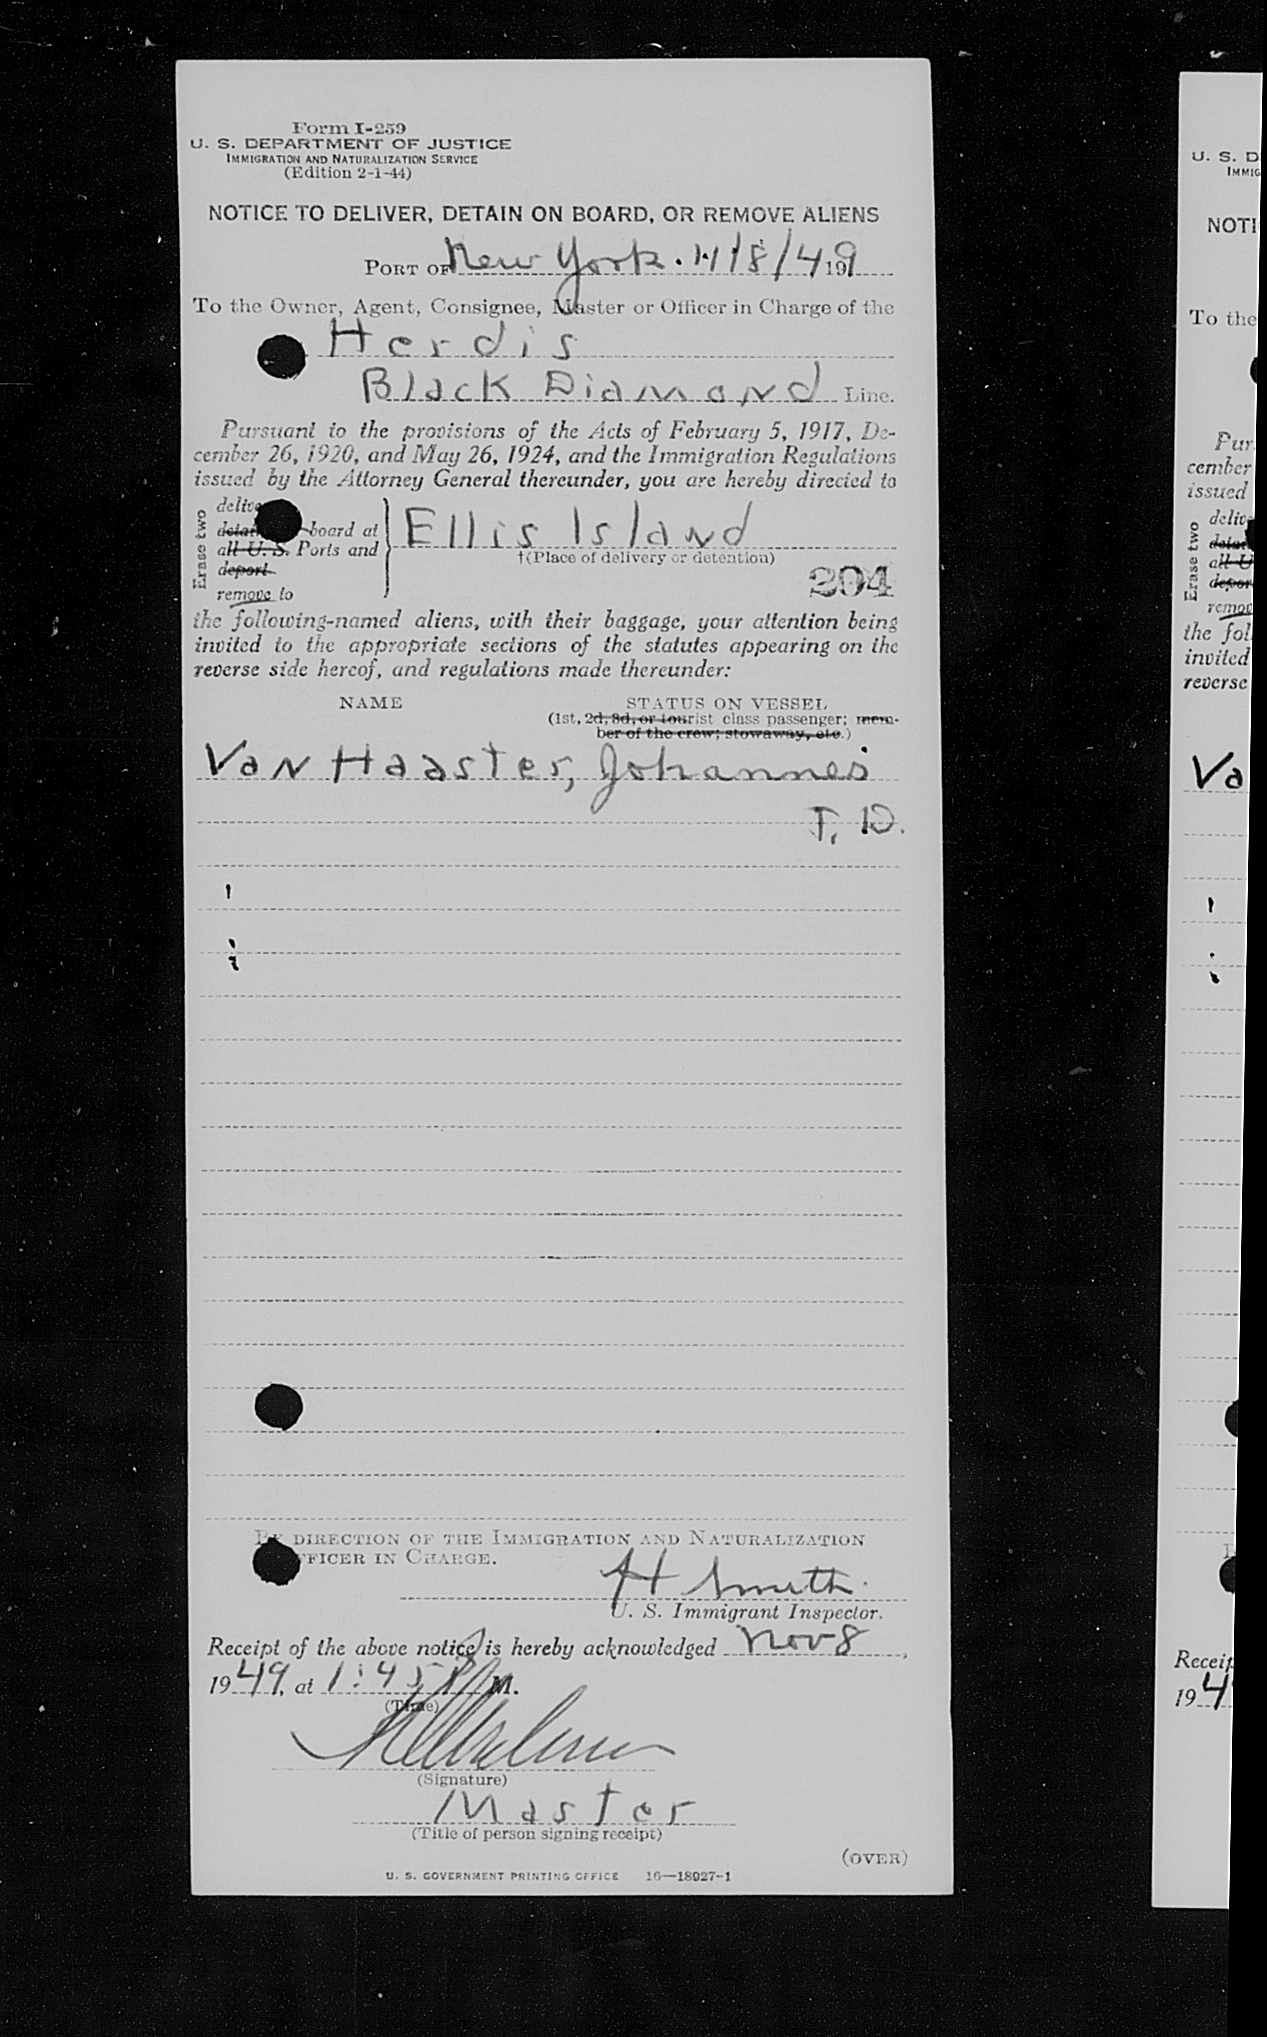 Form I-259
U. S. DEPARTMENT OF JUSTICE
IMMIGRATION AND NATURALIZATION SERVICE
(Edition 2-1-44)
NOTICE TO DELIVER, DETAIN ON BOARD, OR REMOVE ALIENS
PORT OF New York. 11/8/49 19
To the Owner, Agent, Consignee, Master or Officer in Charge of the
Herdis
Black Diamond Line.
Pursuant to the provisions of the Acts of February 5, 1917, De-
cember 26, 1920, and May 26, 1924, and the Immigration Regulations
issued by the Attorney General thereunder, you are hereby directed to
Erase two
board at
all U. S. Ports and
deport
remove to
Ellis Island
†(Place of delivery or detention)
204
the following-named aliens, with their baggage, your attention being
invited to the appropriate sections of the statutes appearing on the
reverse side hereof, and regulations made thereunder:
NAME STATUS ON VESSEL
(1st, 2d, 3d, or tourist class passenger; mem-
ber of the crew; stowaway, etc.)
Van Haaster, Johannes
T. D.
BY DIRECTION OF THE IMMIGRATION AND NATURALIZATION
OFFICER IN CHARGE.
H Smith
U. S. Immigrant Inspector.
Receipt of the above notice is hereby acknowledged Nov 8,
1949, at 1:45 P M.
(Time)
(Signature)
Master
(Title of person signing receipt)
(OVER)
U. S. GOVERNMENT PRINTING OFFICE 16—18927-1
U. S. D
IMMIG
NOTI
To the
Pur
cember
issued
Erase two
all U
the fol
invited
reverse
Va
Receip
19 4